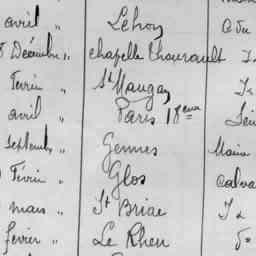 avril " Lehon C du
8 Décembre " chapelle Thouarault I
Fevrier " St Maugan I
avril " Paris 18eme Sei
Septembre " Gennes Maine
Févri " Glos Calva
mars " St Briac I &
fevrier " Le Rheu